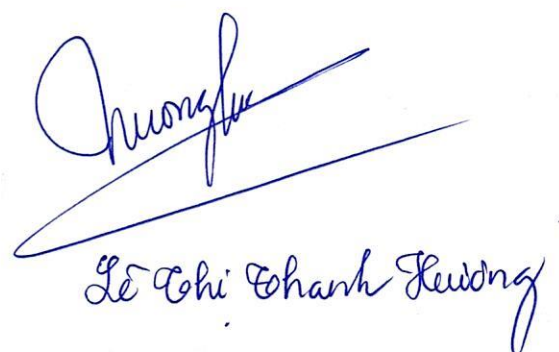 Huong
Lê Thị Thanh Hương